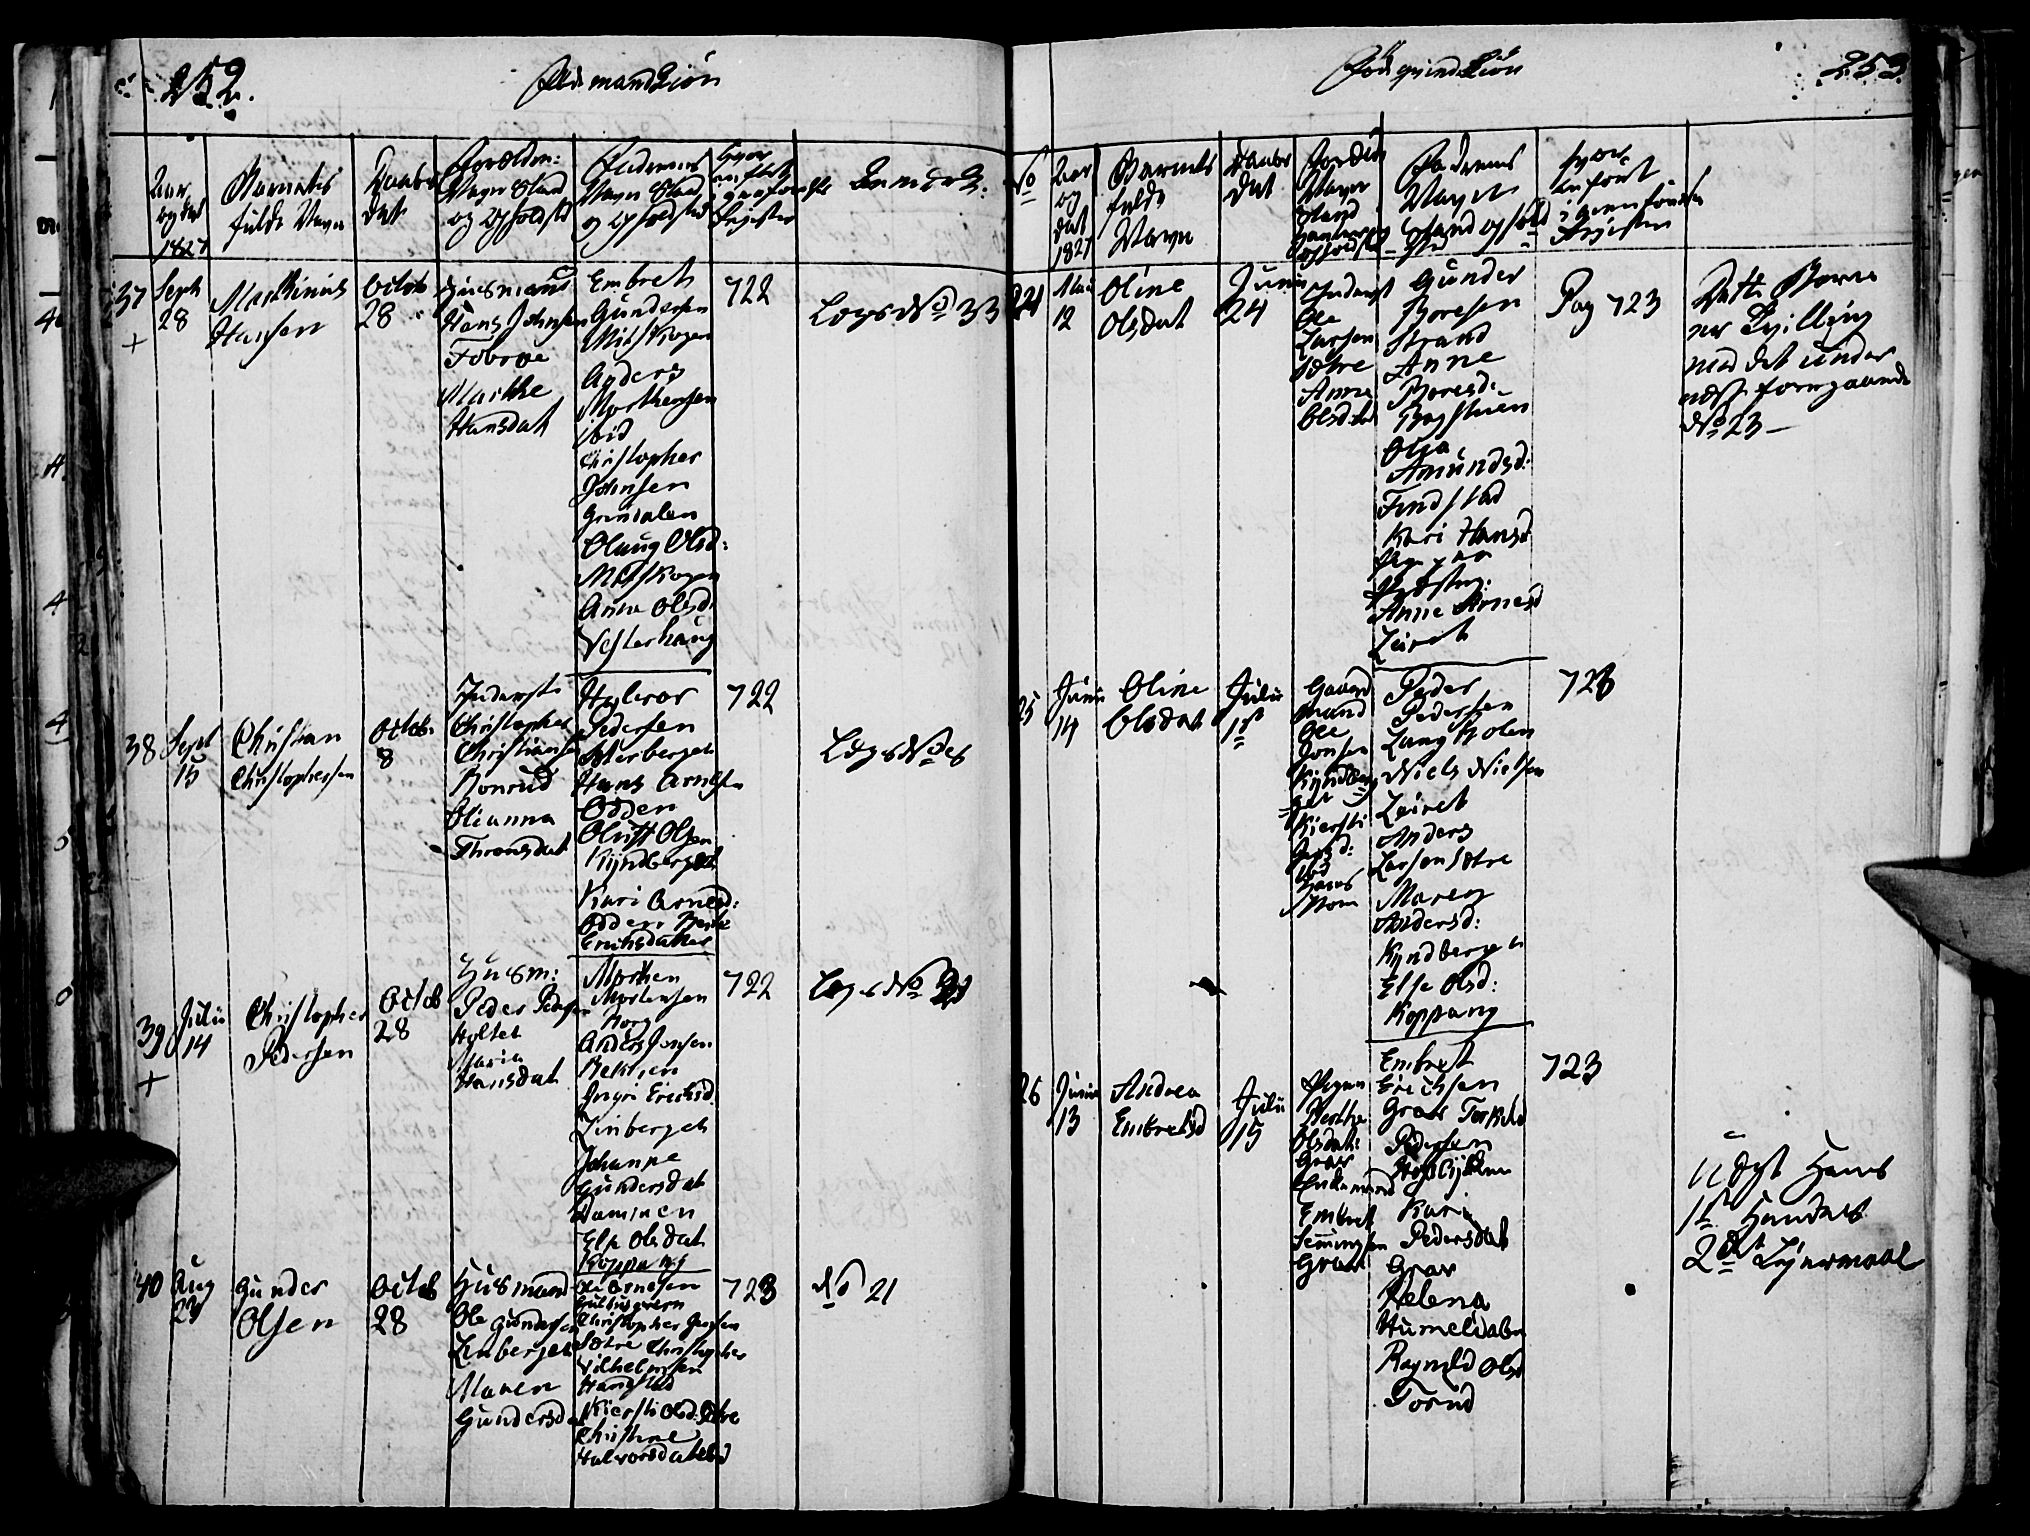 252.
Mandkiön
Aar
og dat
1827
Barnets
fulde Navn
Daabs
dat
Forældr:
Navn Stand
og Opholdsted
Fadernes
Navn Stand
og Opholdsted
Hvor
anført
Register
Anmærk:
37
+
Sept
28
Marthinus
Hansen
Octob
28
Huusmand
Hans Johnsen
Marthe
Hansdat
Embret
Gundersen
Mitskogen
Anders
Morthensen
ibid
Christopher
Johnsen
Grindalen
Olaug Olsd:
Mitskogen
Anne Olsd.
Vesterhaug
722
Lægs No 33
38
Sept
15
Christian
Christophersen
Octob.
8
Inderst
Christopher
Christiansen
Bonrud
Olianna
Thronsdat
Halvor
Pedersen
Østerberget
Hans Arnesen
Odden
Oluff Olsen
Kyndberget
Kari Arnesd:
Odden
Erichsdatter
722
39
+
Julii
14
Christopher
Pedersen
Octob
28
Huusm:
Peder Pedersen
Hyltet
Maria
Hansdat
Morthen
Mortensen
Berg
Anders Jonsen
Bekken
Ingri Erichsd.
Linberget
Johanne
Gundersdat
Dammen
Else Olsdat
Koppang
722
Lægs No
40
Aug
23
Gunder
Olsen
Octob
28
Huusmand
Ole Gundersen
Linberget
Maren
Gundersdat
Ole Arnesen
Christopher Jensen
Sætre Christopher
Vilhelmsen
Haugstad
Kiersti Olsd. Sætre
Christine
Halvorsdat ibid
723
No 21
Qvindekiön
253.
No
Aar
og
dat
1827
Barnets
fulde
Navn
Daabs
dat
Forældr
Navn
Stand
Haandtering
Opholdsted
Fadernes
Navn
Stand og Opholdsted
Hvor
anført
i Jevnførelses
Registeret
24
Maii
12
Oline
Olsdat
Junii
24
Inderst
Ole
Larsen
Sætre
Anne
Olsdat
Gunder
Boresen
Strand
Anne
Boresd:
Bagstuen
Olea
Amundsd:
Findstad
Kari Hansd
Anne Arnesd
Leiret
Pag 723
Dette Barn
er Tvilling
med det under
næst foregaaende
No 23 –
25
Junii
14
Oline
Olsdat
Julii
1st
Gaard
mand
Ole
Jonsen
Kyndber
get
Kiersti
Peder
Pedersen
Langbolen
Niels Nielsen
Leiret
Anders
Larsen Sætre
Maren
Andersd:
Kyndberget
Else Olsd:
Koppang
723
26
Junii
13
Andrea
Embretsd
Julii
15
Pigen
Berthe
Olsdat:
Grav
Enkemand
Embret
Semmingsen
Grav
Embret
Erichsen
Grav Torkild
Pedersen
Kari
Pedersdat
Grav
Helena
Humeldalen
Ragnild Olsd
Torud
723
Udgt Hans
1st Hendes
2det Leiermaal